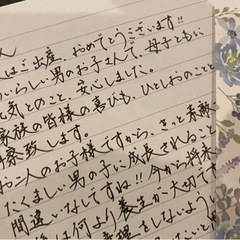 ん
はご出産、おめでとうございます!!
らしい男のお子さんで、母子ともに
元気とのこと、安心しました。
家族の皆様の喜びも、ひとしおのこと
察致します。
お二人のお子様ですから、きっと素敵
たくましい男の子に成長されること
間違いなしですね!!今から将来
は何より養生が大切です
無理をしないよう